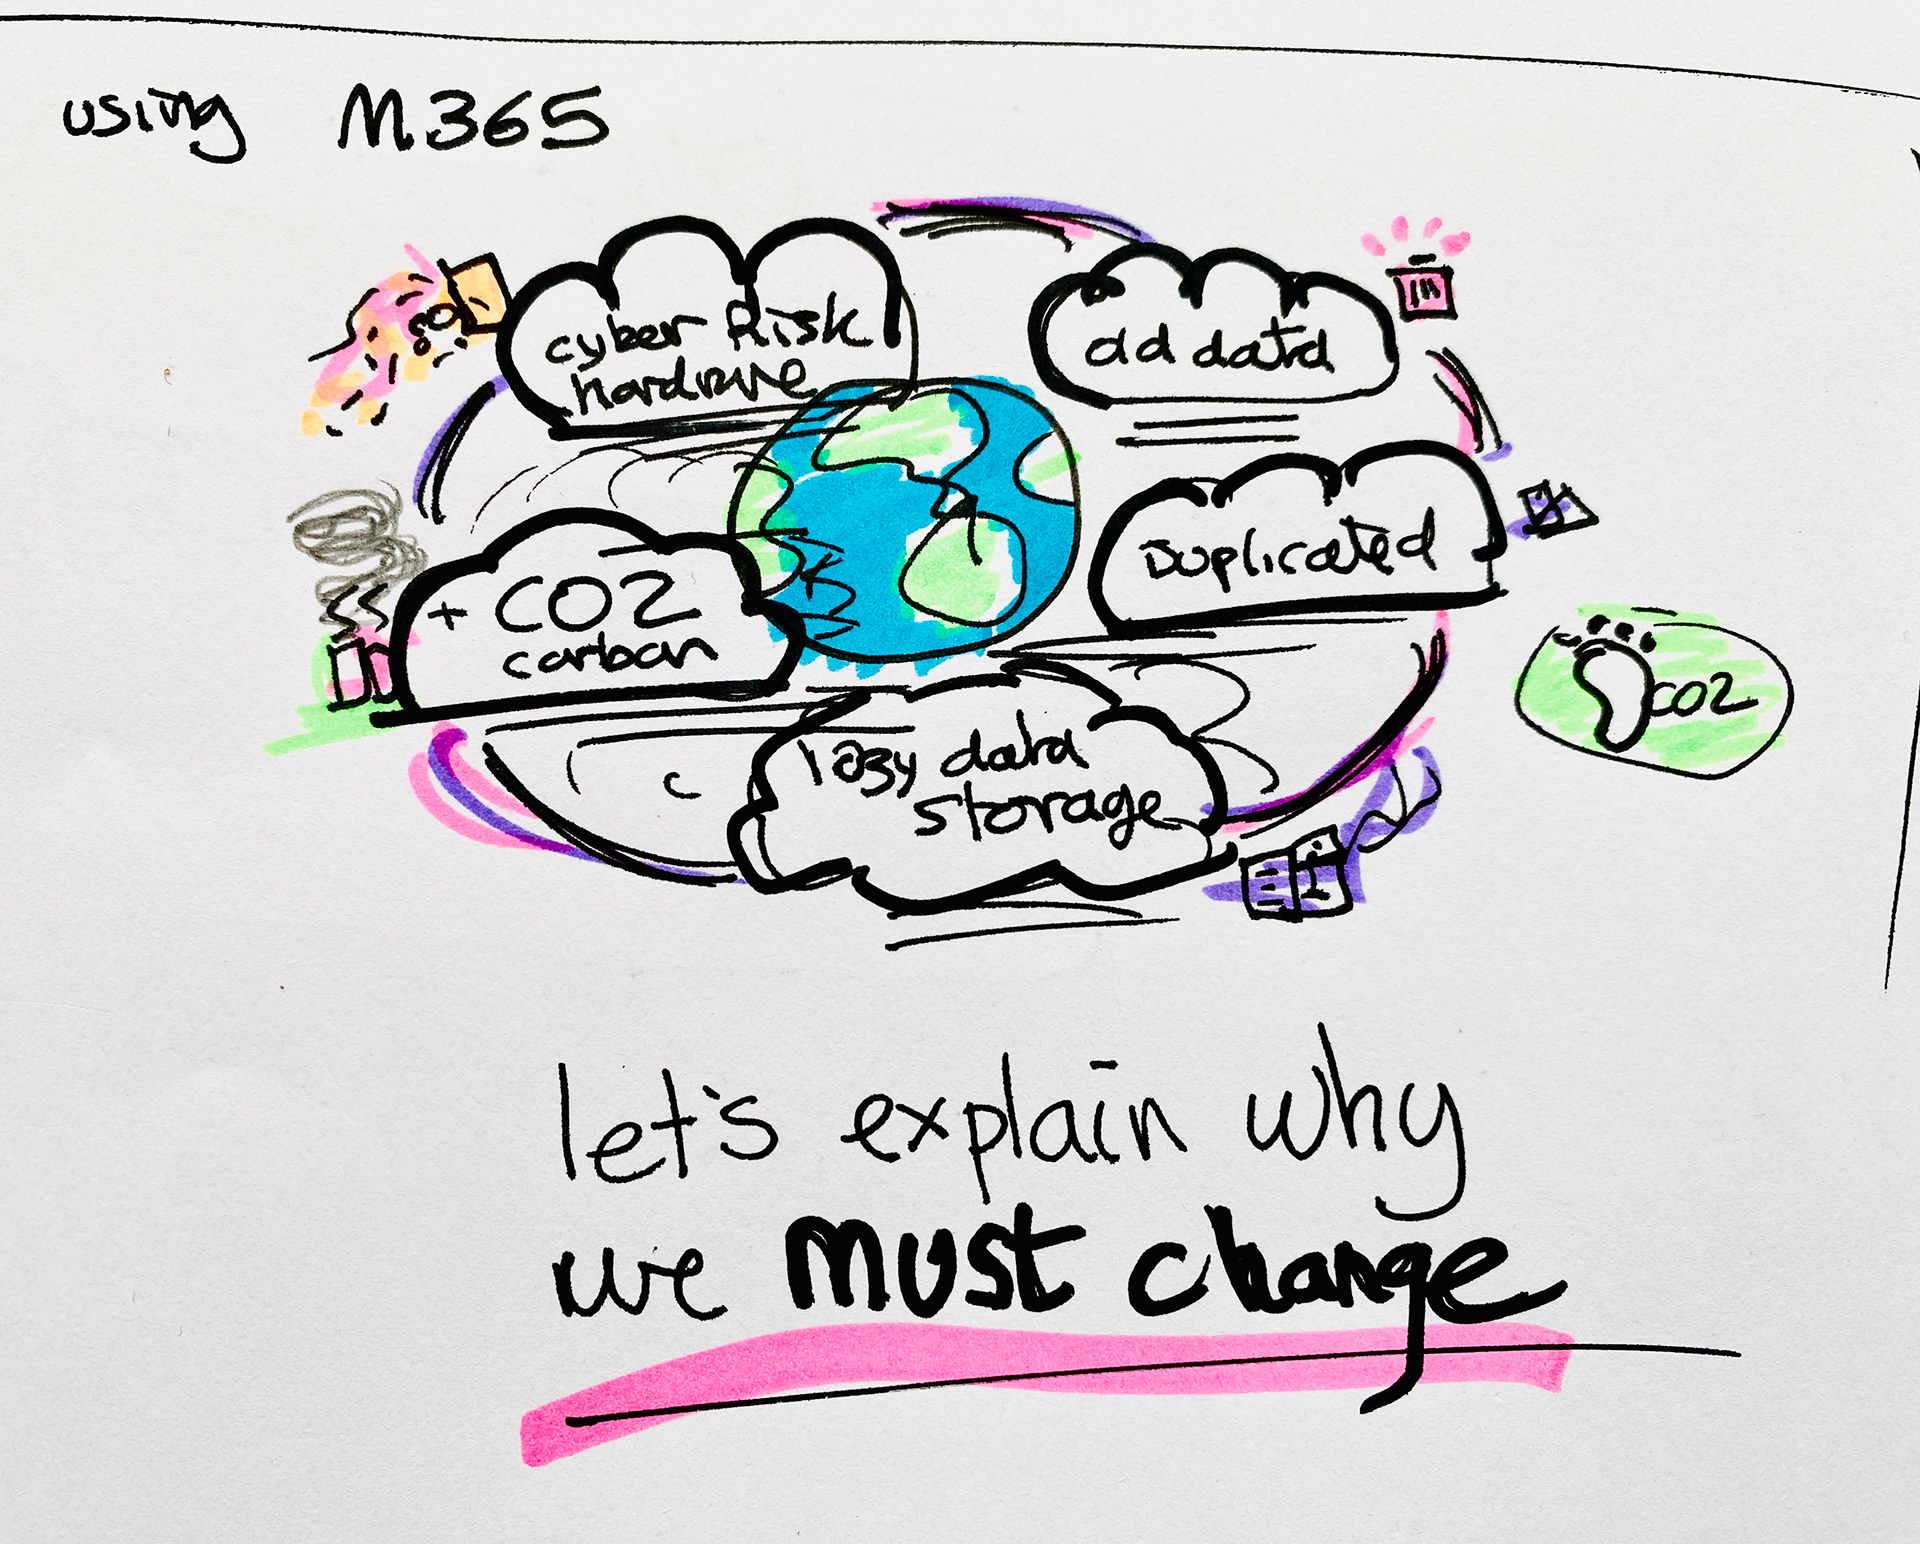 using M365
cyber Risk
hardrive
old data
Duplicated
+ CO2
carbon
CO2
lazy data
storage
let's explain why
we must change